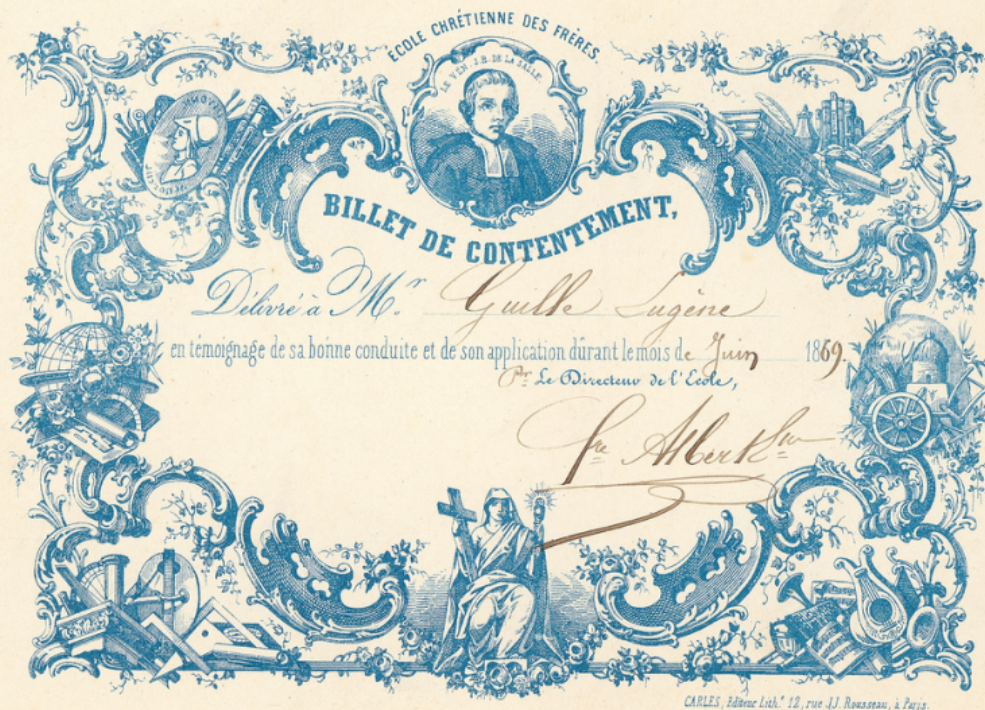 ÉCOLE CHRÉTIENNE DES FRÈRES
LE VEN. J.B. DE LA SALLE.
BILLET DE CONTENTEMENT,
Délivré à Mr. Guille Eugène
en témoignage de sa bonne conduite et de son application durant le mois de Juin 1869.
Pr. Le Directeur de l'Ecole,
fre Albert
CARLES, Editeur Lith.e 12, rue J.J. Rousseau, à Paris.